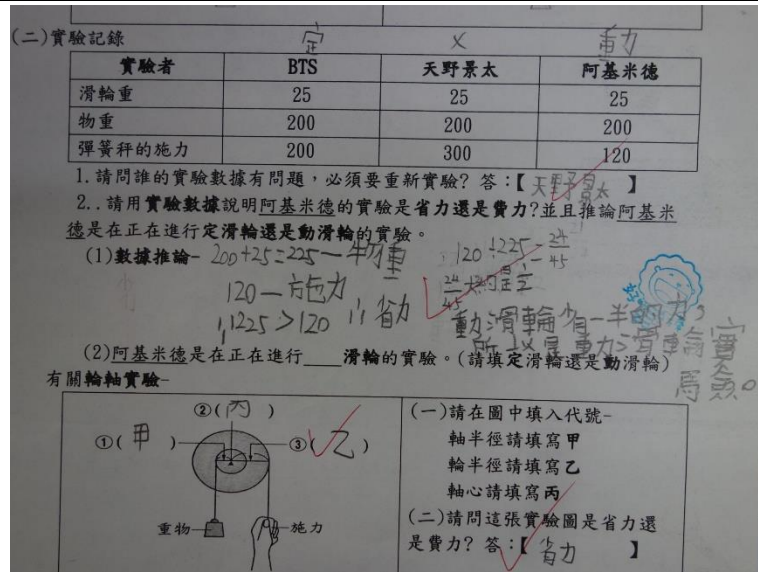 (二)實驗記錄
定 × 動力
實驗者 BTS 天野景太 阿基米德
滑輪重 25 25 25
物重 200 200 200
彈簧秤的施力 200 300 120
1.請問誰的實驗數據有問題，必須要重新實驗? 答：【天野景太】
2..請用實驗數據說明阿基米德的實驗是省力還是費力?並且推論阿基米
德是在正在進行定滑輪還是動滑輪的實驗。
(1)數據推論- 200+25=225—物重 120÷225=24/45
120—施力 ∴省力 24/45大約是½
∵225>120 動滑輪省一半的力，
所以是動力滑車輪實驗。
(2)阿基米德是在正在進行____滑輪的實驗。(請填定滑輪還是動滑輪)
有關輪軸實驗-
②(丙)
①(甲) ③(乙)
重物 施力
(一)請在圖中填入代號-
軸半徑請填寫甲
輪半徑請填寫乙
軸心請填寫丙
(二)請問這張實驗圖是省力還
是費力? 答：【省力】